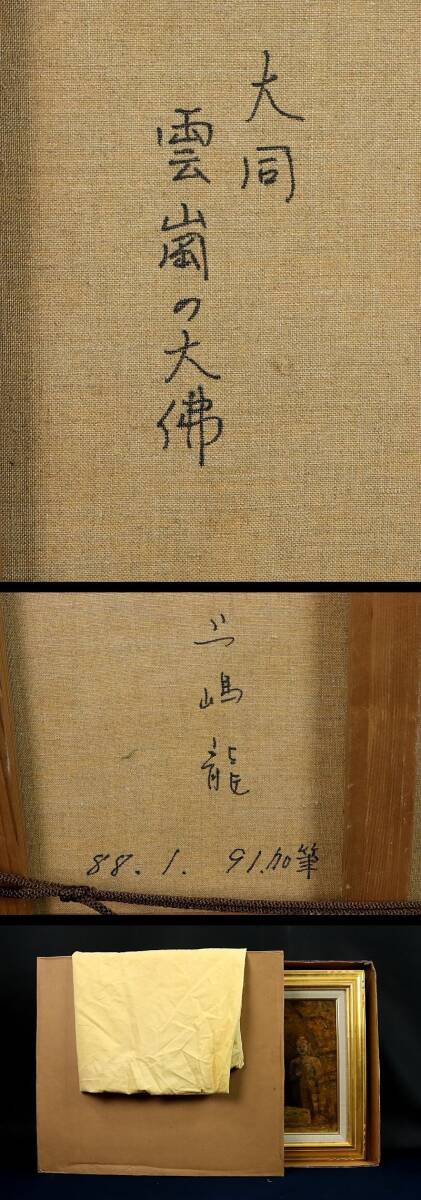 大同
雲崗の大佛
嶋龍
88.1. 91.加筆